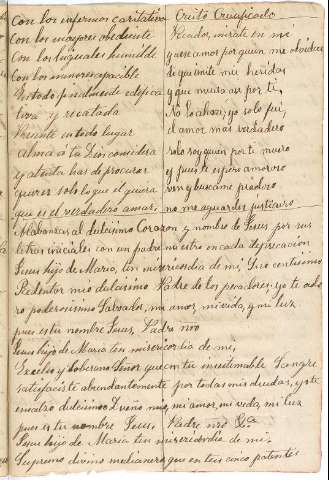 Con los enfermos caritativa
Con los mayores obediente
Con los iguales humilde
Con los menores apacible
En todo finalmente edifica
tiva y recatada
Presente en todo lugar
Alma á tu Dios considera
y atenta has de procurar
querer solo lo que el quiera
que es el verdadero amar.
Cristo Crucificado
Pecador, mirate en mi
y que seamos por quien me olvidas
te que mite mis heridas
y que muero asi por ti,
No lo ahorí, yo solo fuí,
el amor mas verdadero
solo soy quien por ti muero
y fuente espero amoroso
ven y buscame primero
no me aguardes justiciero
Alabanzas al dulcisimo Corazon y nombre de Jesus por sus
letras iniciales con un padre nuestro en cada deprecacion
Jesus hijo de Maria, ten misericordia de mi. Jesus
Redentor mio dulcisimo Padre de los pecadores: yo te ado
ro poderosisimo Salvador, mi amor, mi vida, y mi luz
pues es tu nombre Jesus, Padre nro
Jesus hijo de Maria ten misericordia de mi,
Excelso y soberano Señor que con tu inestimable Sangre
satisfaciste abundantemente por todas mis deudas, yo te
ensalzo dulcisimo Dueño mio, mi amor, mi vida, mi luz
pues es tu nombre Jesus, Padre nro &a
Jesus hijo de Maria ten misericordia de mi.
Supremo divino medianero que en tus cinco patentes